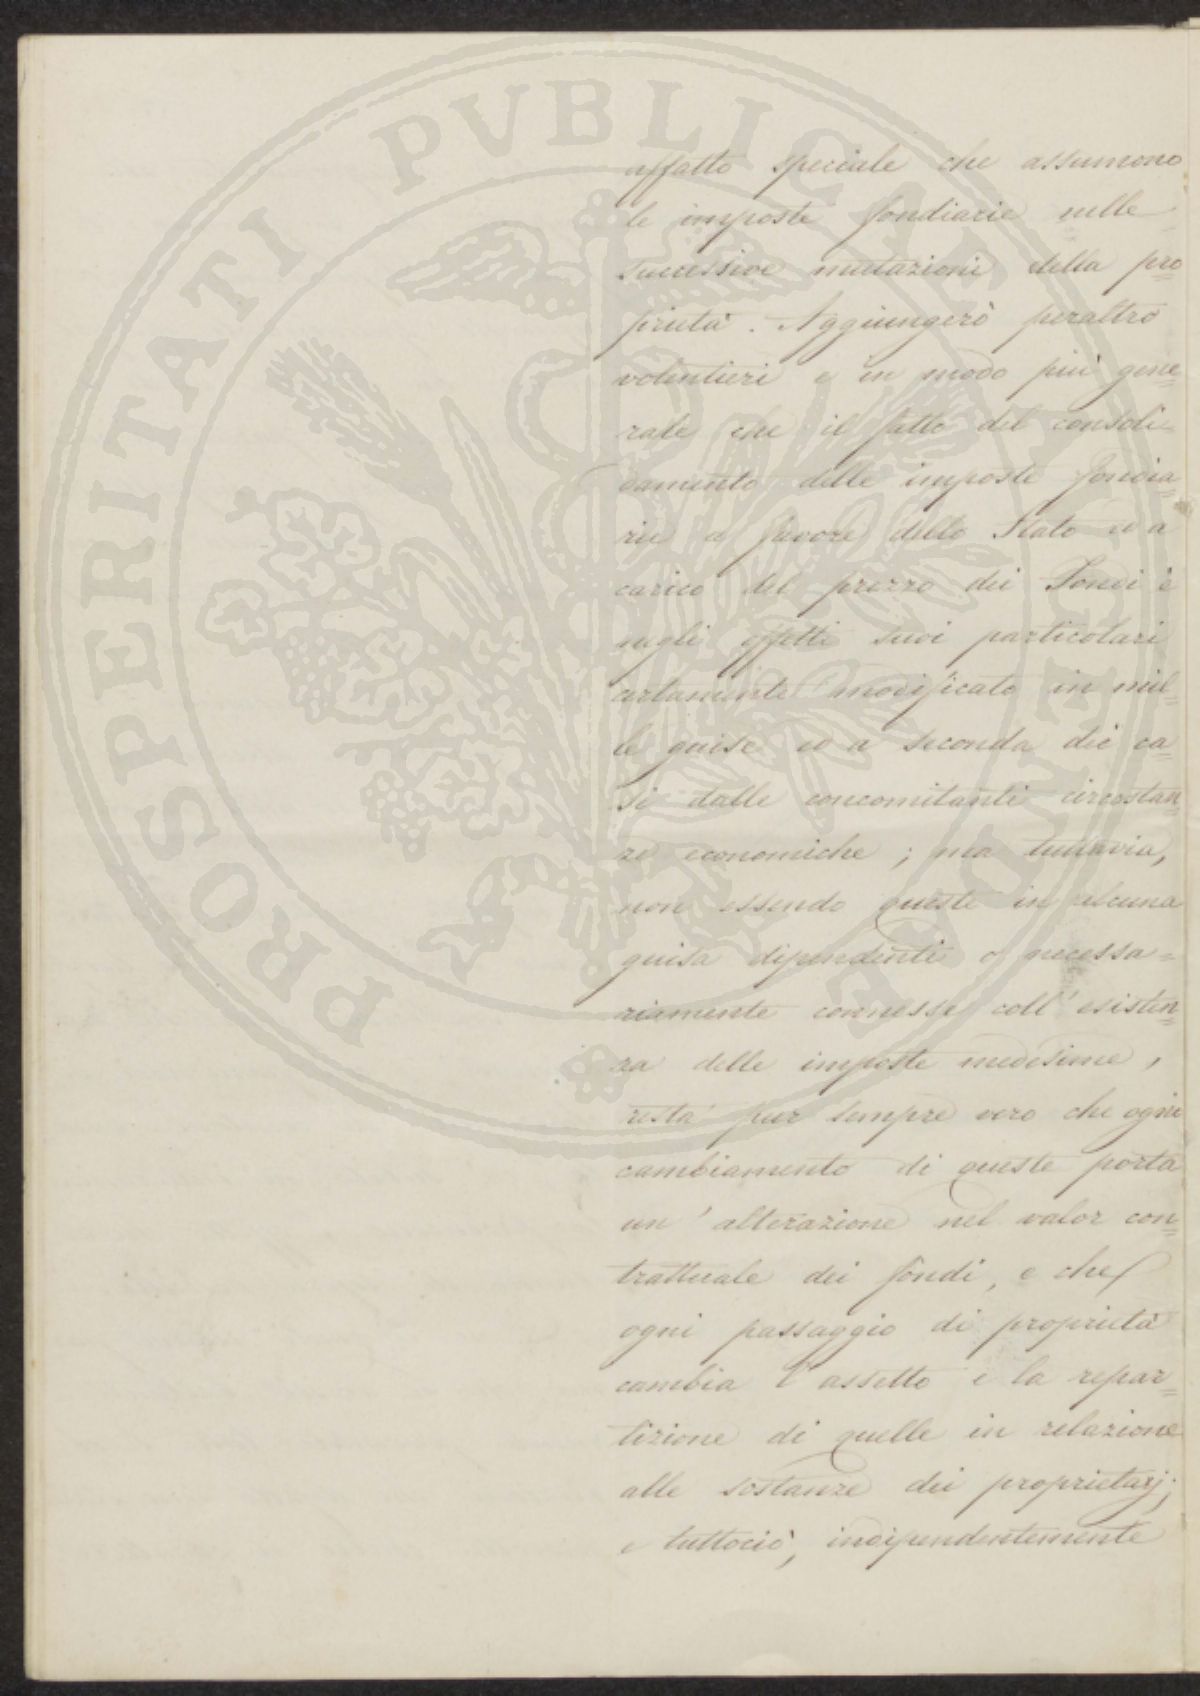 PROSPERITATI PVBLICAE AVGENDAE
affatto speciale che assumono
le imposte fondiarie nelle
successive mutazioni della pro=
prietà. Aggiungerò peraltro
volentieri e in modo più gene=
rale che il fatto del consoli=
damento delle imposte fondia=
rie a favore dello Stato ed a
carico del prezzo dei Fondi è
negli effetti suoi particolari
certamente modificato in mil=
le guise ed a seconda dei ca=
si dalle concomitanti circostan=
ze economiche; ma tuttavia,
non essendo queste in alcuna
guisa dipendenti o necessa=
riamente connesse coll'esisten=
za delle imposte medesime,
resta pur sempre vero che ogni
cambiamento di queste porta
un'alterazione nel valor con=
trattuale dei fondi, e che
ogni passaggio di proprietà
cambia l'assetto e la repar=
tizione di quelle in relazione
alle sostanze dei proprietarj;
e tuttociò, indipendentemente